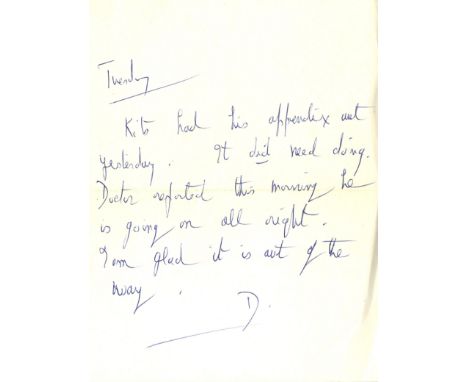 Tuesday
Kits had his appendix out
yesterday. It did need doing.
Doctor reported this morning he
is going on all right.
I am glad it is out of the
way.
D.